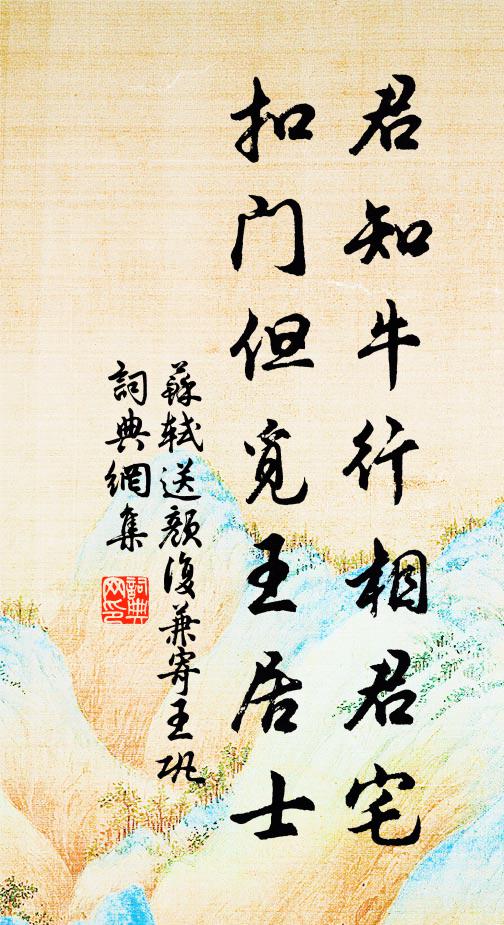 君知牛行相君宅
扣门但觅王居士
蘇軾送顏復兼寄王巩
詞典網集
詞典
网印